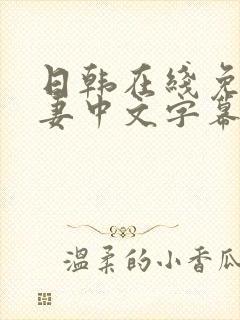 日韩在线免
妻中文字幕
温柔的小香瓜